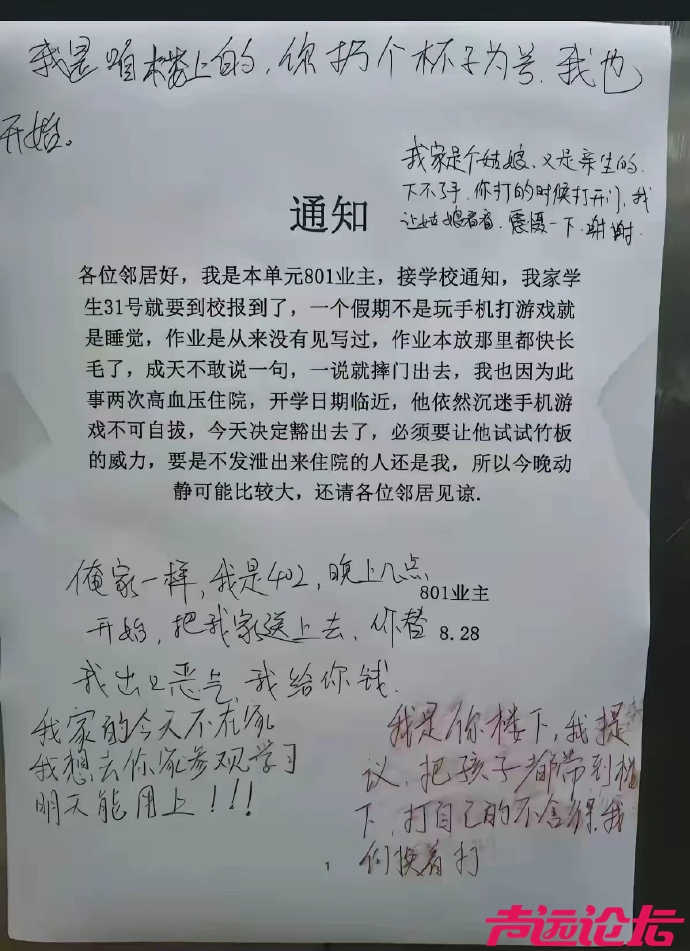 我是咱楼上的,你扔个杯子为号,我也
开始。
我家是个姑娘,又是亲生的,
下不了手,你打的时候打开门,我
让姑娘看看,震慑一下,谢谢.
通知
各位邻居好，我是本单元801业主，接学校通知，我家学
生31号就要到校报到了，一个假期不是玩手机打游戏就
是睡觉，作业是从来没有见写过，作业本放那里都快长
毛了，成天不敢说一句，一说就摔门出去，我也因为此
事两次高血压住院，开学日期临近，他依然沉迷手机游
戏不可自拔，今天决定豁出去了，必须要让他试试竹板
的威力，要是不发泄出来住院的人还是我，所以今晚动
静可能比较大，还请各位邻居见谅.
801业主
8.28
俺家一样,我是402,晚上几点
开始,把我家送上去,你替
我出口恶气,我给你钱.
我家的今天不在家
我想去你家参观学习
明天能用上!!!
我是你楼下,我提
议,把孩子都带到楼
下,打自己的不舍得,我
们换着打
1
声远论坛